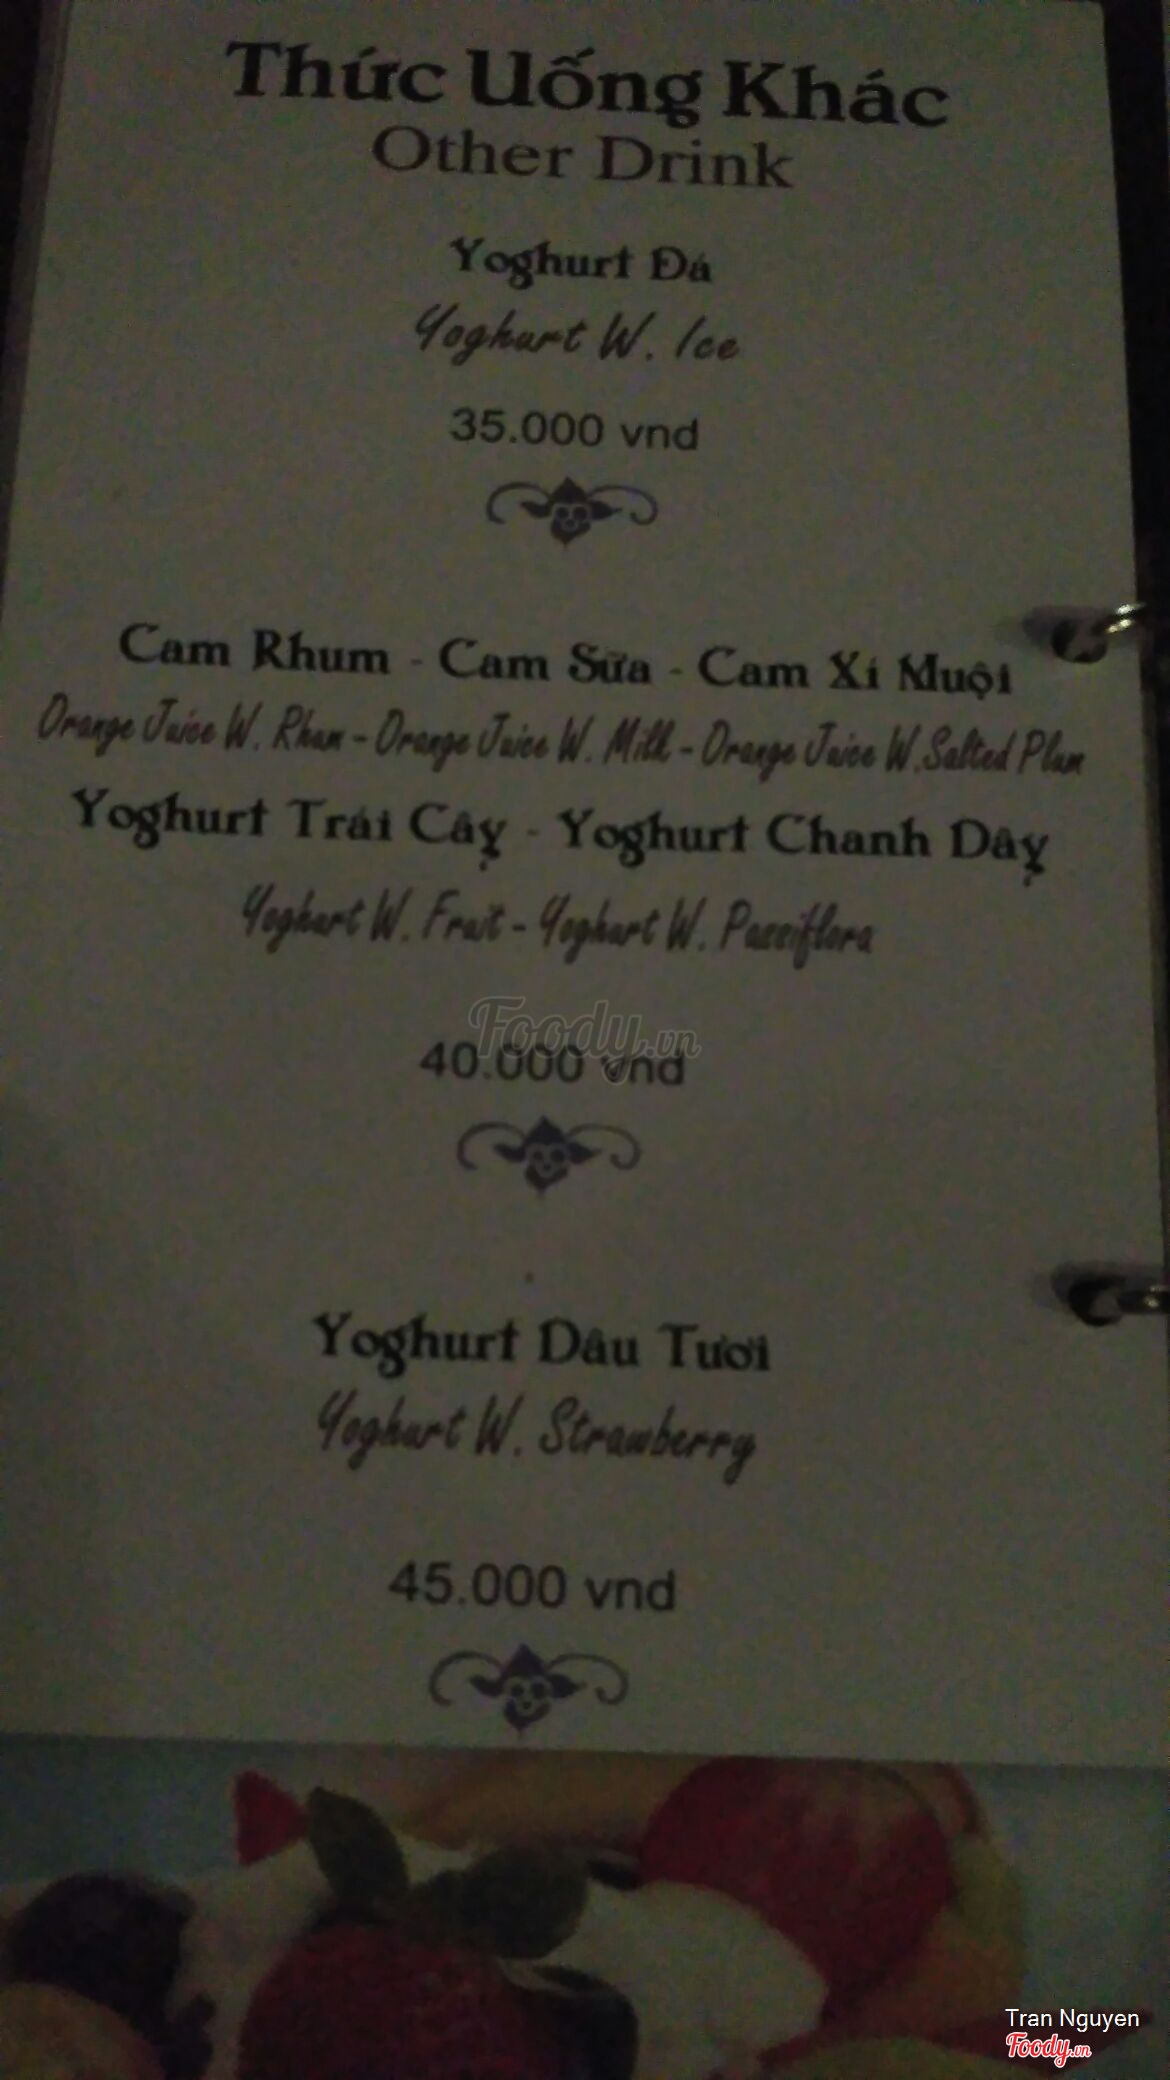 Thức Uống Khác
Other Drink
Yoghurt Đá
Yoghurt W. Ice
35.000 vnd
Cam Rhum - Cam Sữa - Cam Xí Muội
Orange Juice W. Rhum - Orange Juice W. Milk - Orange Juice W.Salted Plum
Yoghurt Trái Cây - Yoghurt Chanh Dây
Yoghurt W. Fruit - Yoghurt W. Passiflora
Foody.vn
40.000 vnd
Yoghurt Dâu Tươi
Yoghurt W. Strawberry
45.000 vnd
Tran Nguyen
Foody.vn